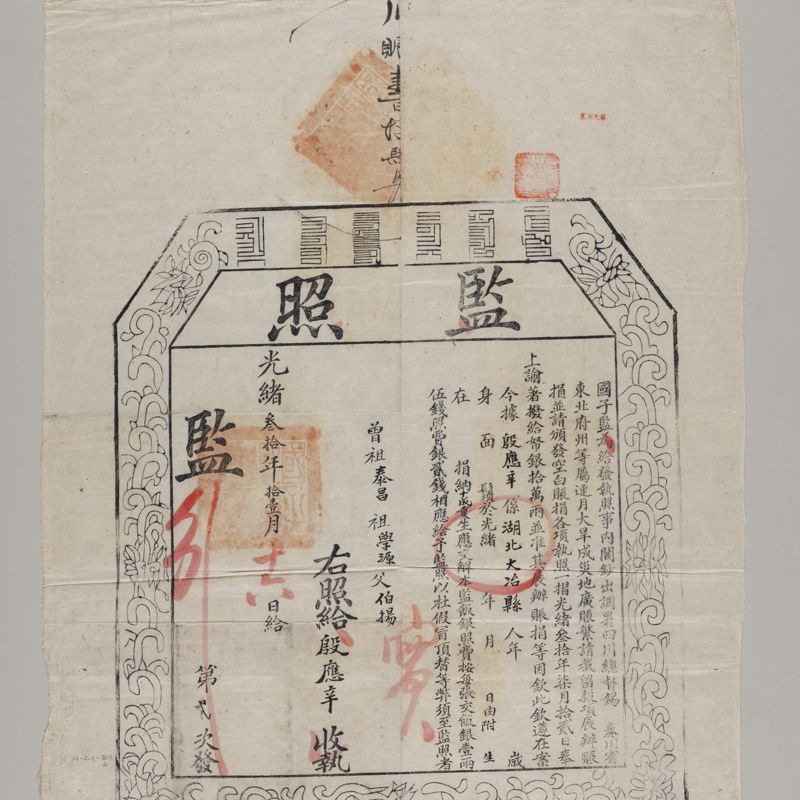 監照
國子監為給發執照事內閣鈔出調署四川總督錫 奏川省
東北府州等屬連月大旱成災地廣賑繁請截留款項展辦賑
捐並請頒發空白賑捐各項執照一摺光緒叁拾年柒月拾貳日奉
上諭著撥給帑銀拾萬兩並准其展辦賑捐等因欽此欽遵在案
今據殷應辛係湖北大冶縣人年 歲
身 面 鬚於光緒 年 月 日由附生
在 捐納 生應交解本監飯銀照費按每張交飯銀壹兩
伍錢照費銀貳錢相應給予監照以杜假冒頂替等弊須至監照者
曾祖泰昌 祖學源 父伯揚
右照給殷應辛 收執
光緒叁拾年拾壹月 十六 日給
監
第 次發